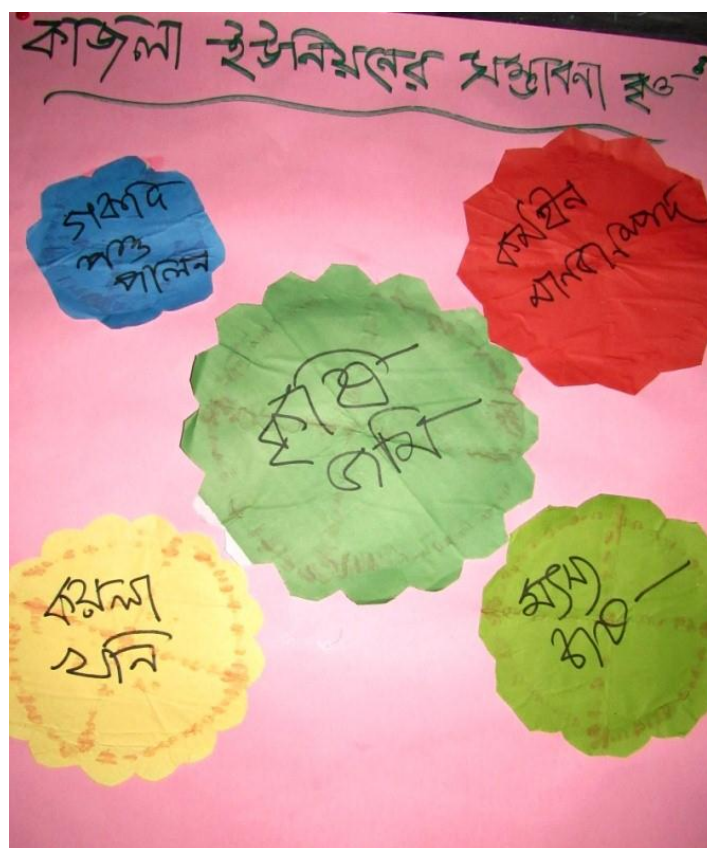 কাজলা ইউনিয়নের সম্ভাবনা
গবাদি
পশু
পালন
কর্মহীন
মানব সম্পদ
কৃষি
জমি
কয়লা
খনি
মৎস্য
চাষ